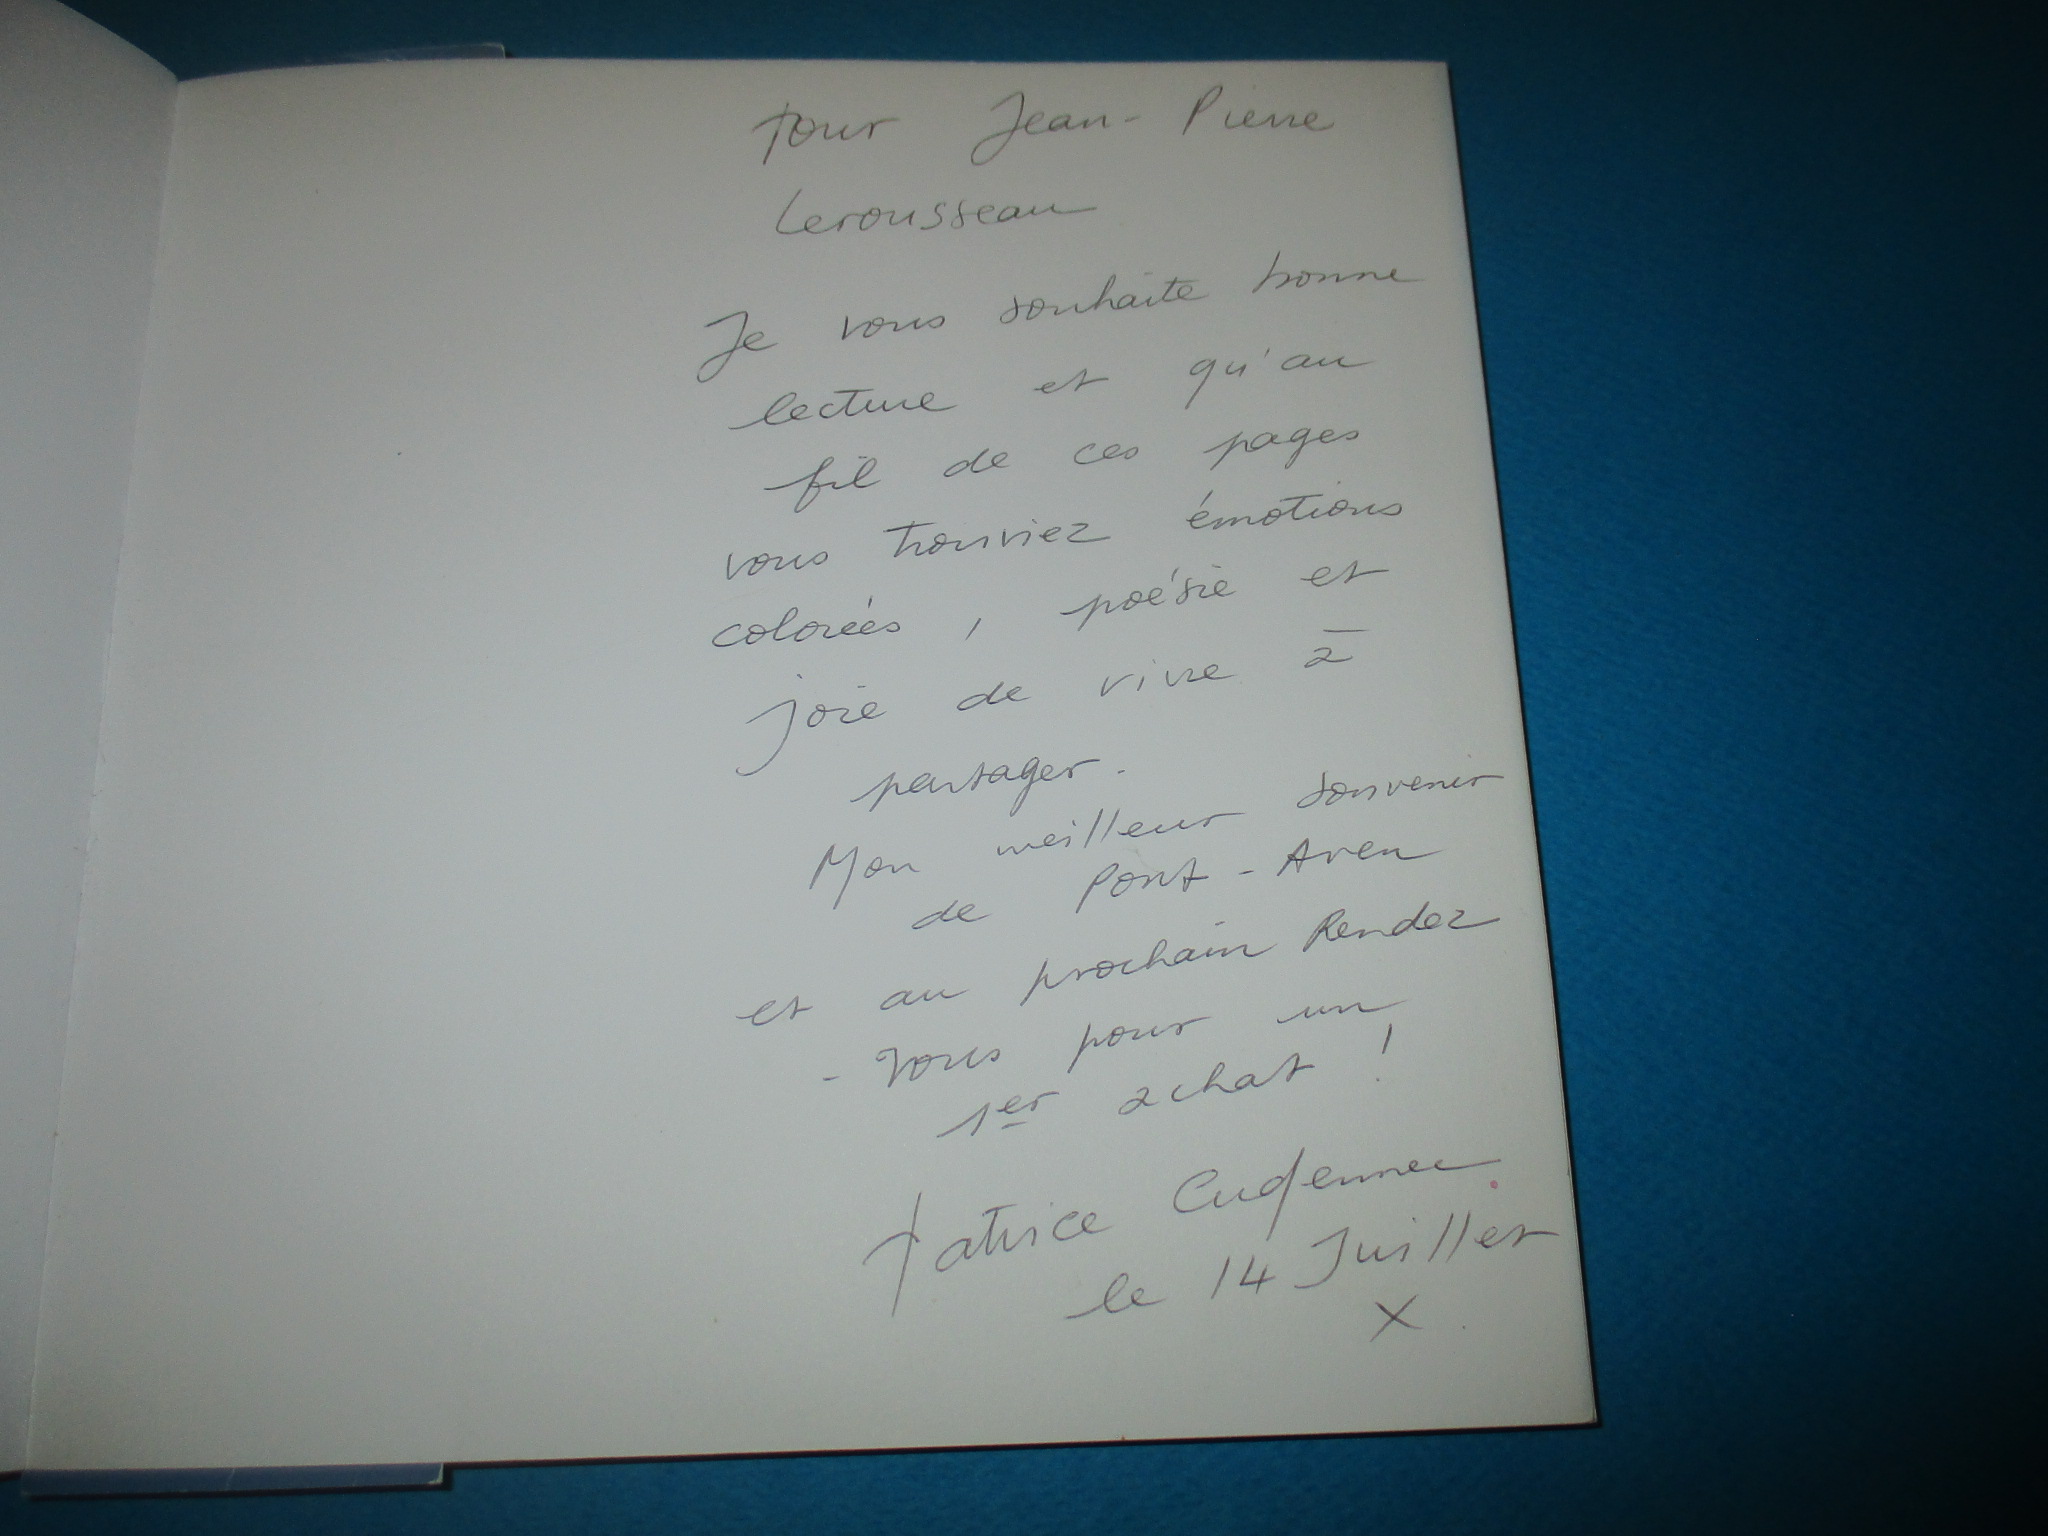 Pour Jean-Pierre
Lerousseau
Je vous souhaite bonne
lecture et qu'au
fil de ces pages
vous trouviez émotions
colorées, poésie et
joie de vivre à
partager.
Mon meilleur souvenir
de Pont-Aven
et au prochain Rendez
-vous pour un
1er achat !
Patrice Cudennec
le 14 Juillet
X.